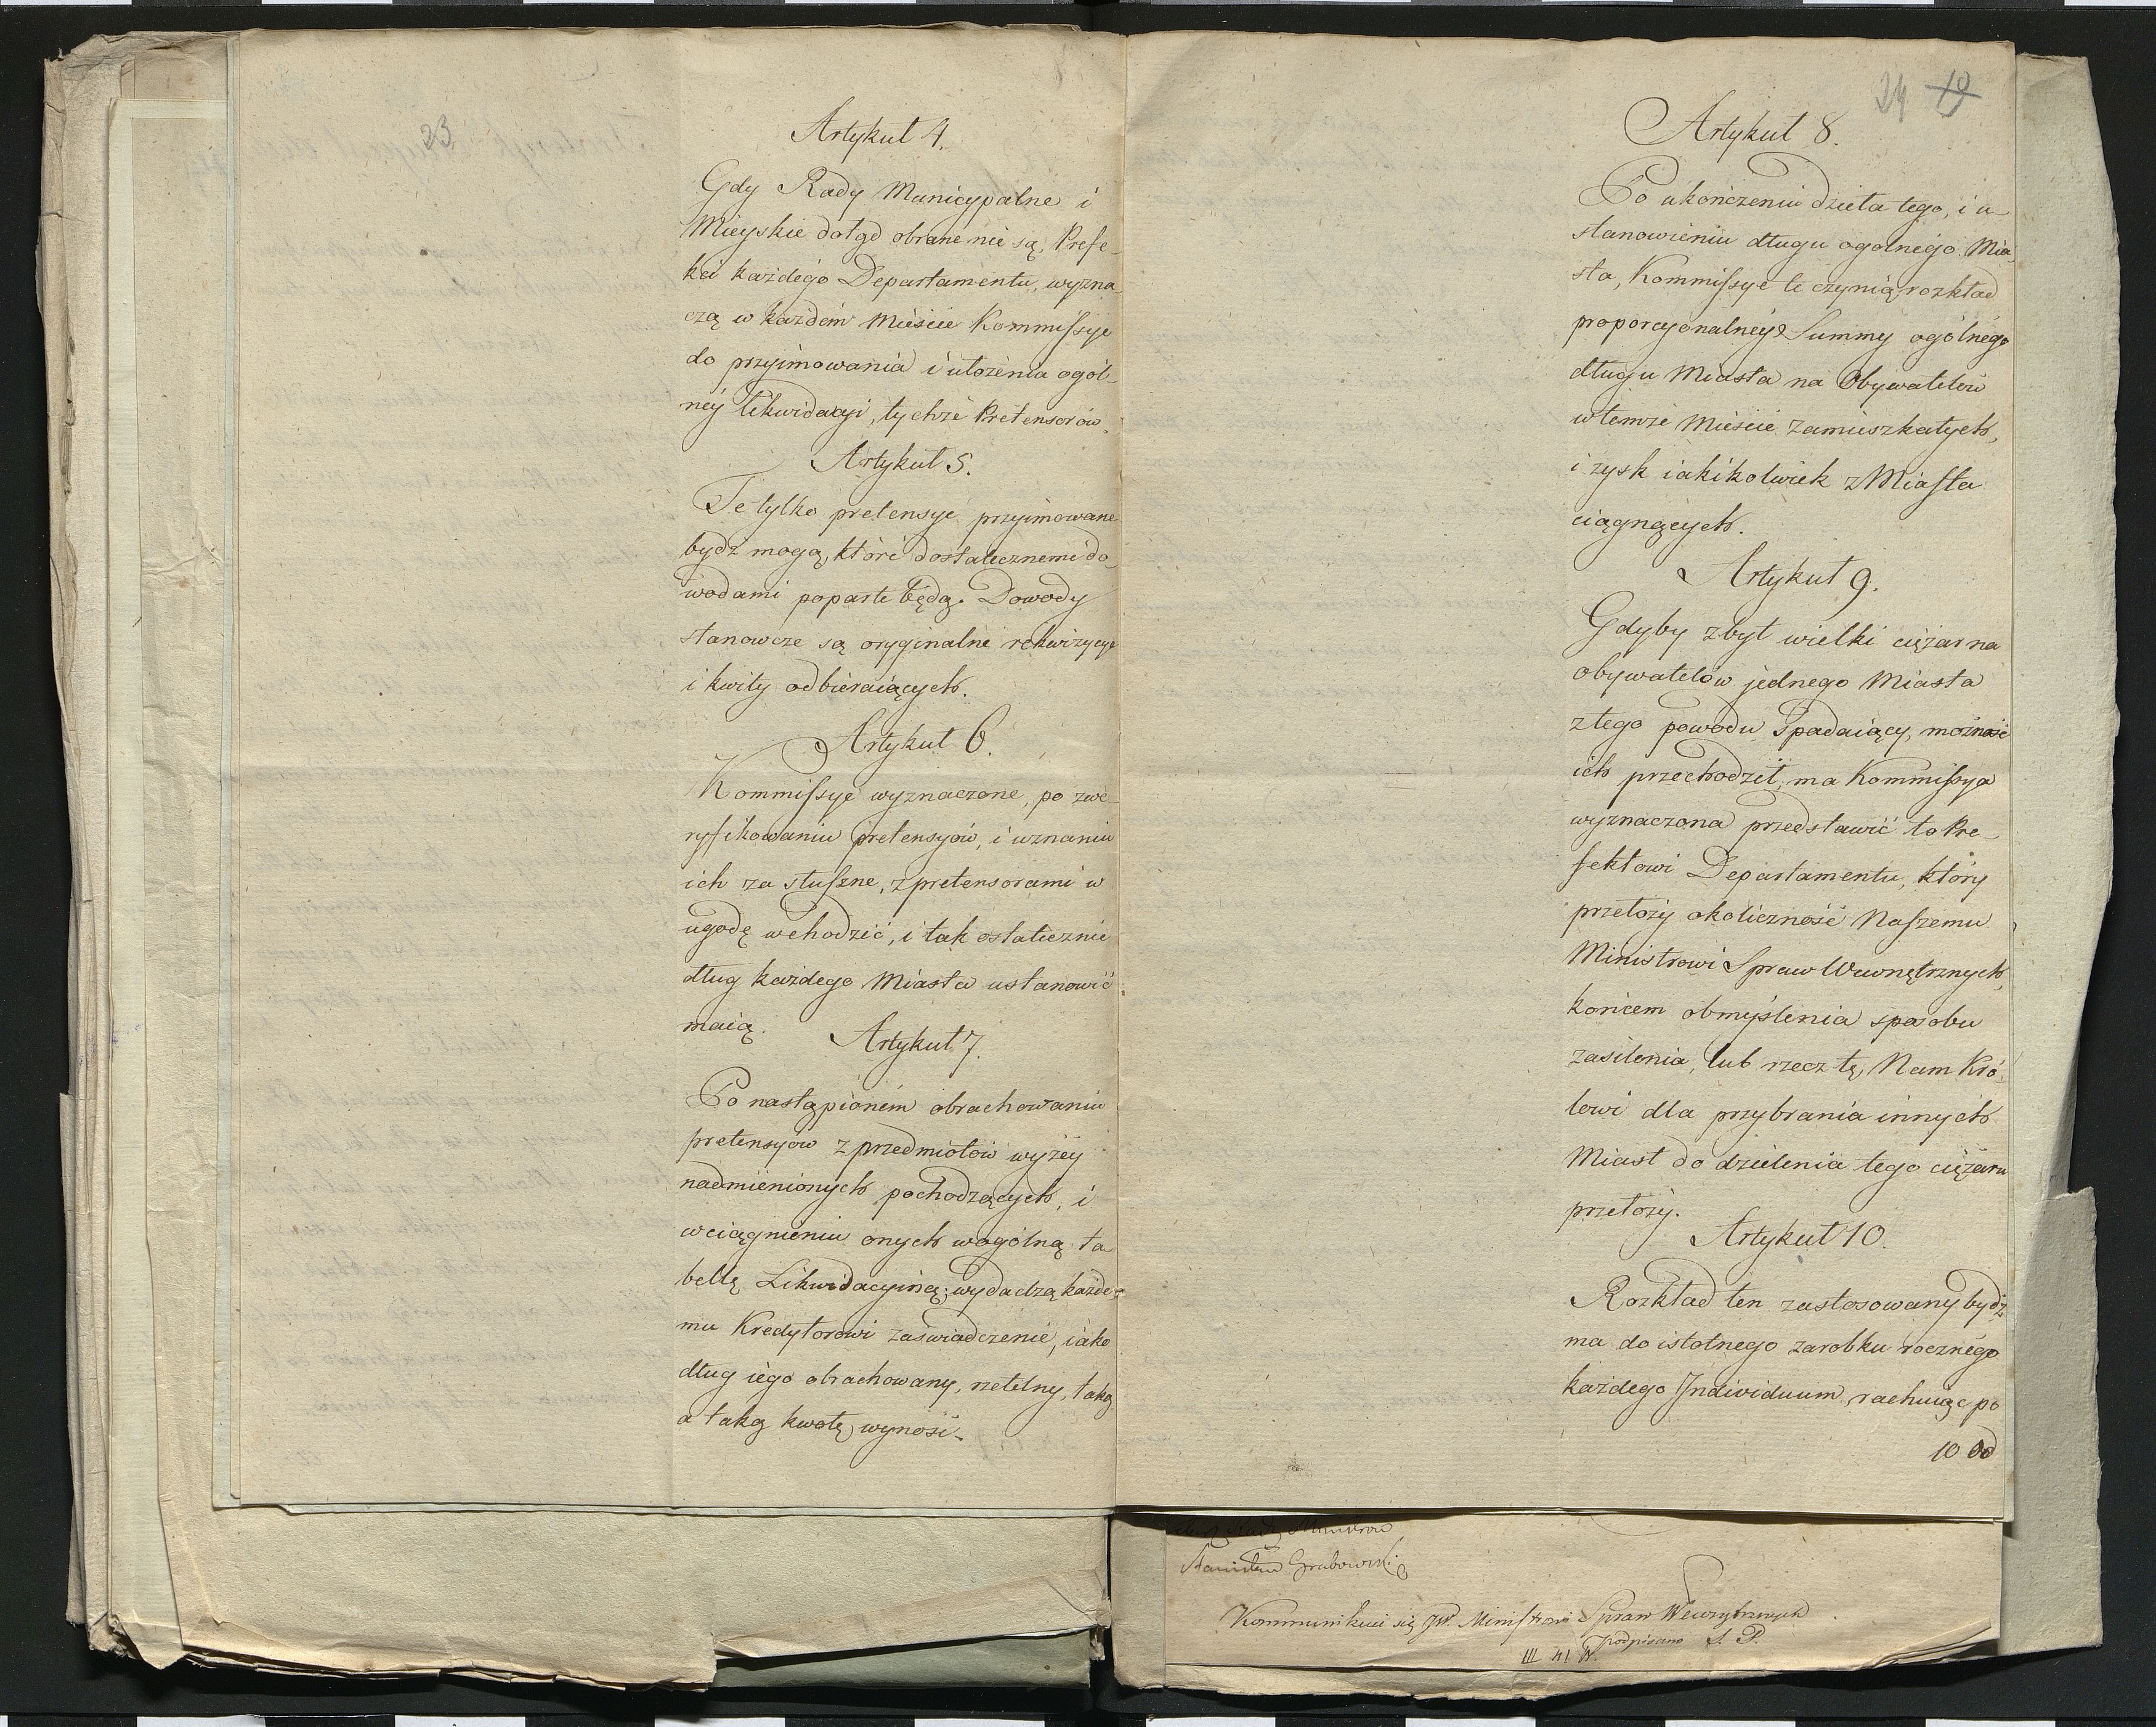 23
Artykuł 4.
Gdy Rady Municypalne i
Mieyskie dotąd obrane nie są, Prefe-
kci każdego Departamentu, wyzna-
czą w każdém Mieście Kommissye
do przyimowania i ułożenia ogól-
néy likwidacyi, tychże Pretensorów.
Artykuł 5.
Te tylko pretensye przyimowane
bydź mogą, które dostatecznemi do-
wodami poparte będą. Dowody
stanowcze są oryginalne rekwizycye
i kwity odbieraiących.
Artykuł 6.
Kommissye wyznaczone, po zwe-
ryfikowaniu pretensyów, i uznaniu
ich za słuszne, z pretensorami w
ugodę wchodzić, i tak ostatecznie
dług każdego Miasta ustanowić
maią.
Artykuł 7.
Po nastąpioném obrachowaniu
pretensyów z przedmiotów wyżéy
nadmienionych pochodzących, i
wciągnieniu onych w ogólną ta-
bellę Likwidacyiną; wydadzą każde-
mu Kredytorowi zaświadczenie, iako
dług iego obrachowany, rzetelny, taką
a taką kwotę wynosi.
24 19
Artykuł 8.
Po ukończeniu dzieła tego, i u-
stanowieniu długu ogolnégo Mia-
sta, Kommissye te czynią rozkład
proporcyonalnéy Summy ogólnégo
długu Miasta na Obywatelów
w temże Mieście zamieszkałych,
i zysk iakikolwiek z Miasta
ciągnących.
Artykuł 9.
Gdyby zbyt wielki ciężar na
obywatelów jednego Miasta
z tego powodu spadaiący, możność
ich przechodził, ma Kommissya
wyznaczona przedstawić to Pre-
fektowi Departamentu, który
przełoży okoliczność Naszemu
Ministrowi Spraw Wewnętrznych,
końcem obmyślenia sposobu
zasilenia, lub rzecz tę, Nam Kró-
lowi dla przybrania innych
Miast do dzielenia tego ciężaru
przełoży.
Artykuł 10.
Rozkład ten zastosowany bydź
ma do istotnego zarobku rocznégo
każdego Individuum, rachuiąc po
10 od
Stanisław Grabowski
Kommunikuie się JW. Ministrowi Spraw Wewnętrznych
podpisano S. P.